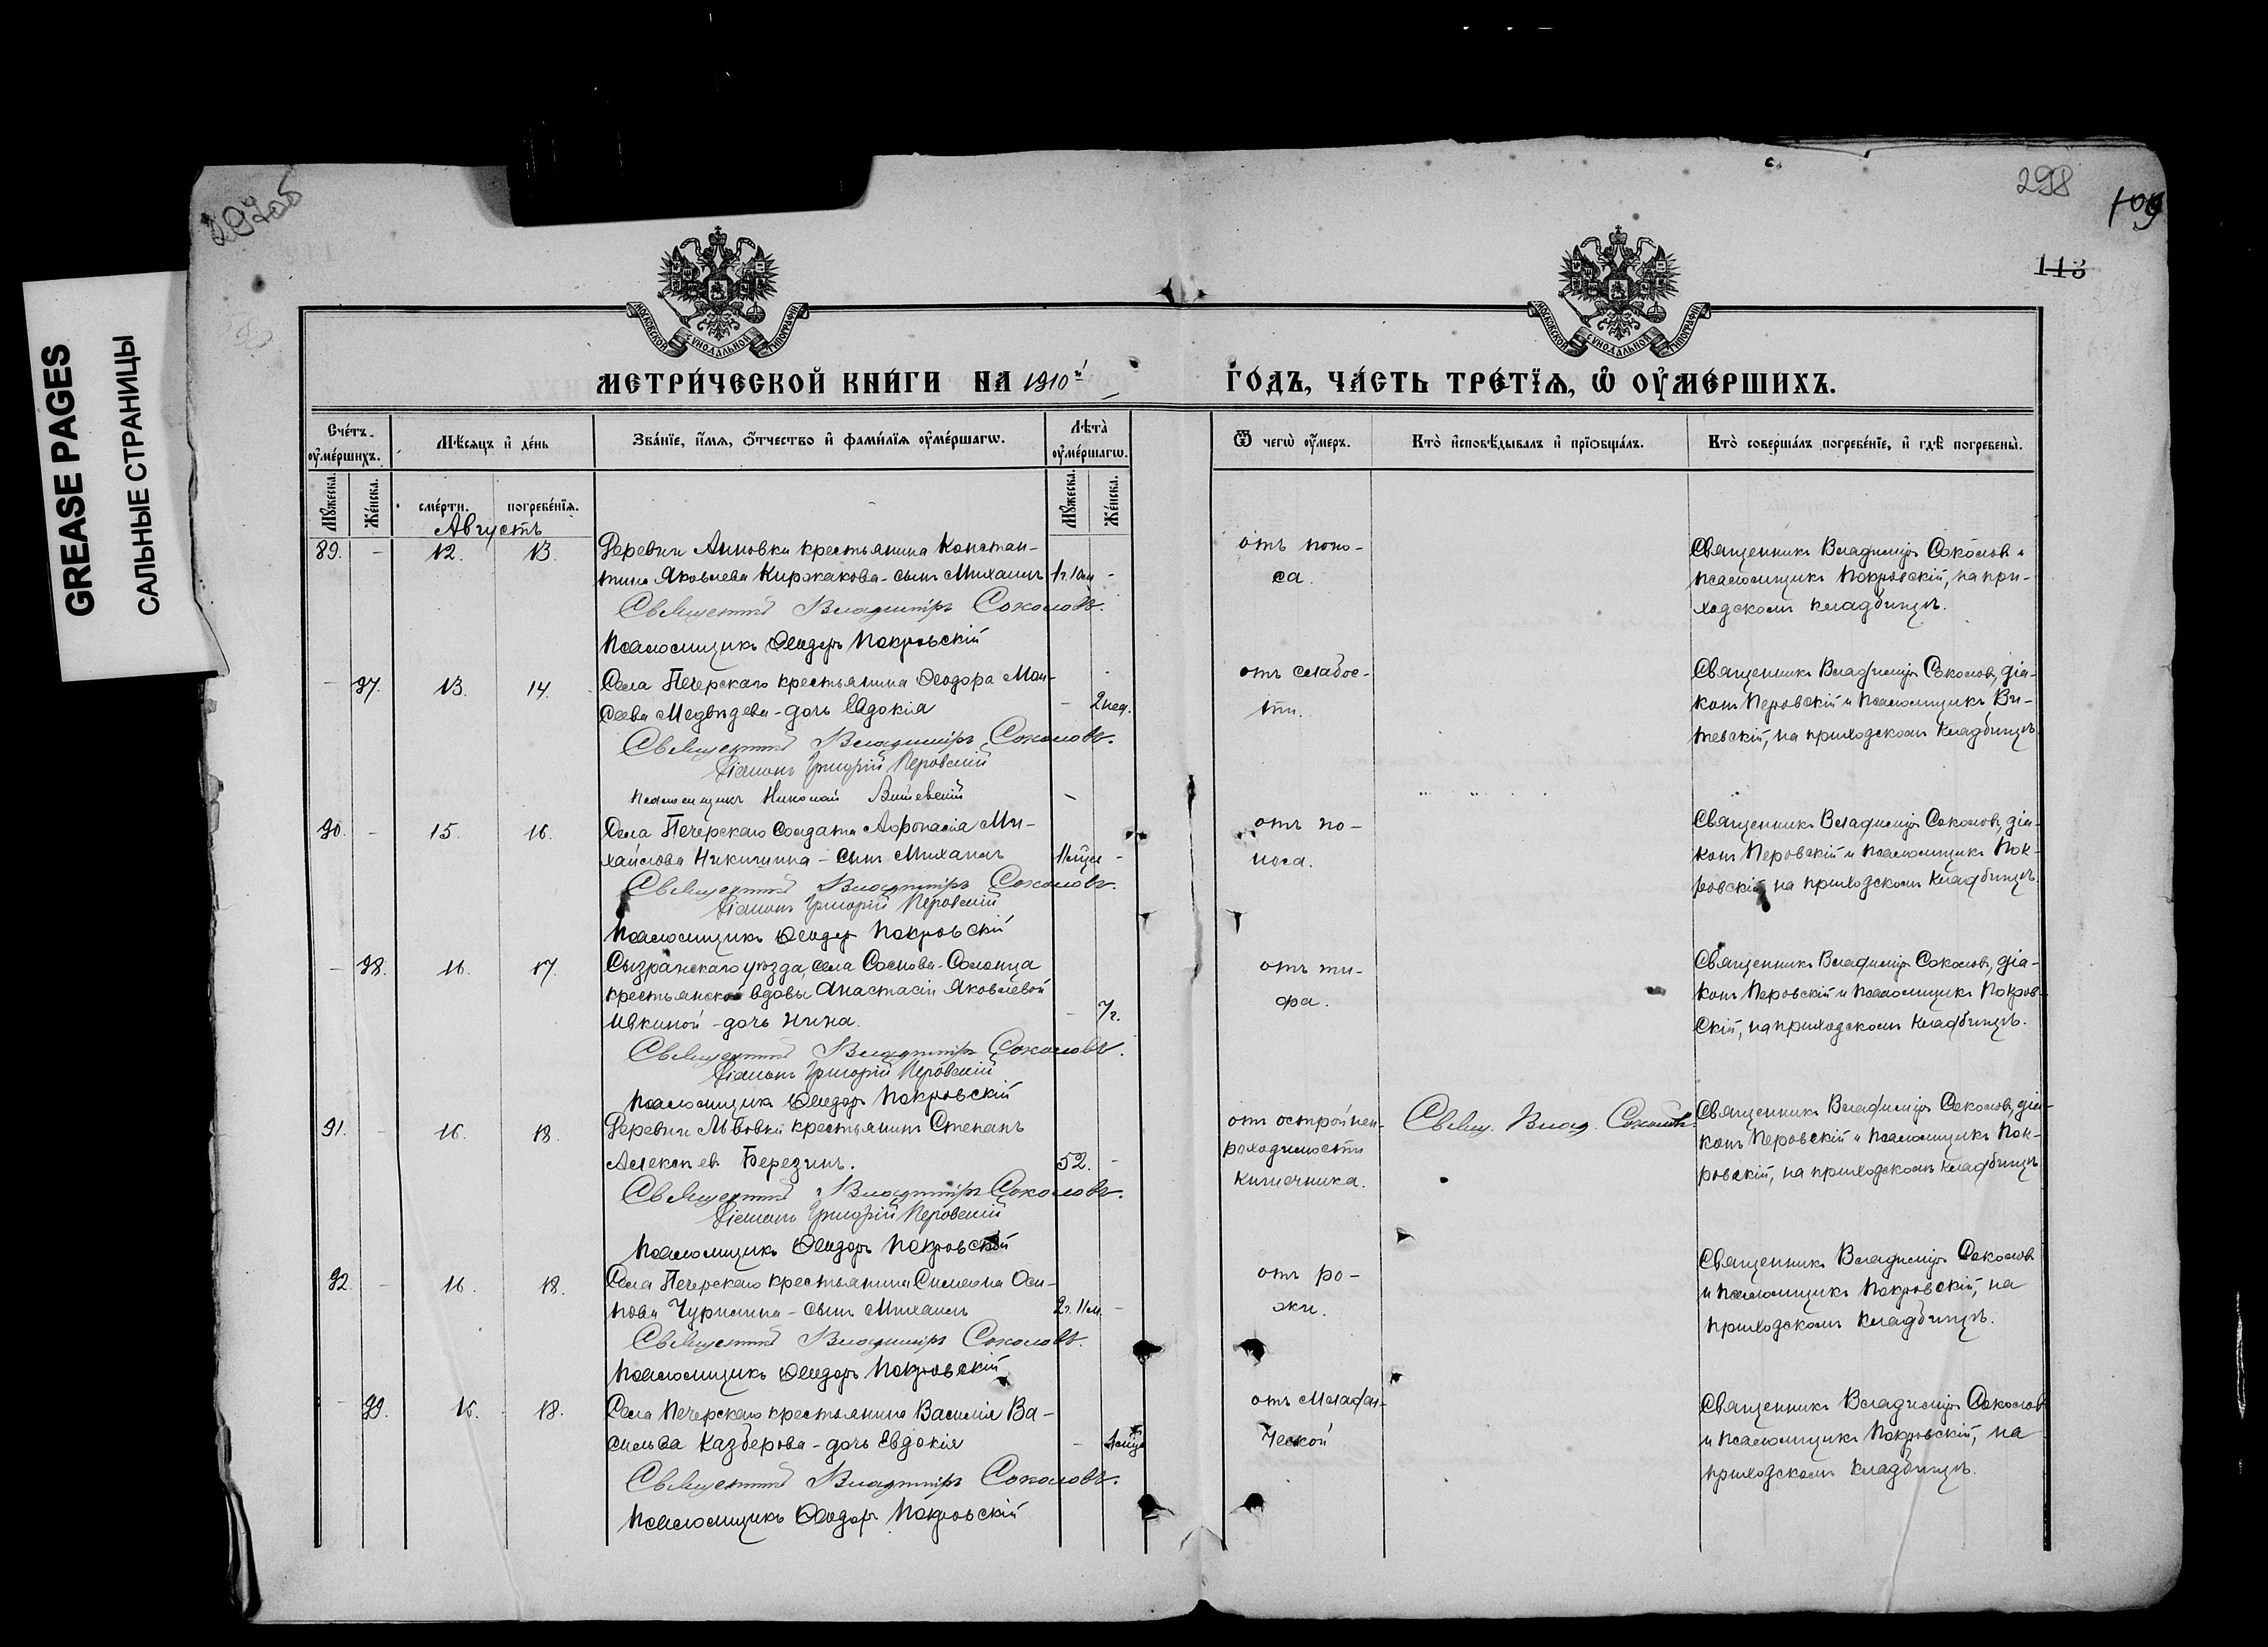 297об
298
109
113
GREASE PAGES
САЛЬНЫЕ СТРАНИЦЫ
МОСКОВСКОЙ СѴНОДАЛЬНОЙ ТИПОГРАФІИ
МОСКОВСКОЙ СѴНОДАЛЬНОЙ ТИПОГРАФІИ
МЕТРИ́ЧЕСКОЙ КНИ́ГИ НА 1910й
ГО́ДЪ, ЧА́СТЬ ТРЕ́ТІѦ, Ѽ ОУ҆МЕ́РШИХЪ.
Сче́тъ оу҆ме́ршихъ.
Мѣ́сяцъ и҆ де́нь
Зва́нїе, и҆́мѧ, ѻ҆́тчество и҆ фами́лїѧ оу҆ме́ршагѡ.
Лѣта̀ оу҆ме́ршагѡ.
Ѿ чегѡ̀ оу҆́меръ.
Кто̀ и҆сповѣ́дывалъ и҆ прїѡбща́лъ.
Кто̀ соверша́лъ погребе́нїе, и҆ гдѣ̀ погребены̀.
Мꙋ́жеска. Же́нска. сме́рти. погребе́нїѧ. Мꙋ́жеска. Же́нска.
Августъ
89. - 12. 13. Деревни Анновки крестьянина Констан-
тина Яковлева Киржакова - сынъ Михаилъ 1г. 10м -
Священникъ Владиміръ Соколовъ.
Псаломщикъ Ѳеодоръ Покровскій
отъ поно-
са.
Священникъ Владиміръ Соколовъ и
псаломщикъ Покровскій, на при-
ходскомъ кладбищѣ.
- 97. 13. 14. Села Печерскаго крестьянина Ѳеодора Мои-
сеева Медвѣдева - дочь Евдокія - 2 нед.
Священникъ Владиміръ Соколовъ.
Діаконъ Григорій Перовскій
псаломщикъ Николай Витевскій
отъ слабос-
ти.
Священникъ Владиміръ Соколовъ, діа-
конъ Перовскій и псаломщикъ Ви-
тевскій, на приходскомъ кладбищѣ.
90. - 15. 16. Села Печерскаго солдата Аѳанасія Ми-
хайлова Никитина - сынъ Михаилъ -
Священникъ Владиміръ Соколовъ.
Діаконъ Григорій Перовскій
Псаломщикъ Ѳеодоръ Покровскій
отъ по-
носа.
Священникъ Владиміръ Соколовъ, діа-
конъ Перовскій и псаломщикъ Пок-
ровскій, на приходскомъ кладбищѣ.
- 98. 16. 17. Сызранскаго уѣзда, села Соснова-Солонца
крестьянской вдовы Анастасіи Яковлевой
Ивкиной - дочь Нина. - 7г.
Священникъ Владиміръ Соколовъ.
Діаконъ Григорій Перовскій
Псаломщикъ Ѳеодоръ Покровскій
отъ ти-
фа.
Священникъ Владиміръ Соколовъ, діа-
конъ Перовскій и псаломщикъ Покров-
скій, на приходскомъ кладбищѣ.
91. - 16. 18. Деревни Львовки крестьянинъ Степанъ
Алексѣевъ Березинъ. 52. -
Священникъ Владиміръ Соколовъ.
Діаконъ Григорій Перовскій
Псаломщикъ Ѳеодоръ Покровскій
отъ острой неп-
роходимости
кишечника.
Свящ. Влад. Соколовъ.
Священникъ Владиміръ Соколовъ, діа-
конъ Перовскій и псаломщикъ Пок-
ровскій, на приходскомъ кладбищѣ
92. - 16. 18. Села Печерскаго крестьянина Симеона Оси-
пова Чурилина - сынъ Михаилъ 2г. 11м. -
Священникъ Владиміръ Соколовъ.
Псаломщикъ Ѳеодоръ Покровскій
отъ ро-
жи.
Священникъ Владиміръ Соколовъ
и псаломщикъ Покровскій, на
приходскомъ кладбищѣ.
- 99. 18. Села Печерскаго крестьянина Василія Ва-
сильева Казберова - дочь Евдокія -
Священникъ Владиміръ Соколовъ.
Псаломщикъ Ѳеодоръ Покровскій
отъ
ческой
Священникъ Владиміръ Соколовъ
и псаломщикъ Покровскій, на
приходскомъ кладбищѣ.